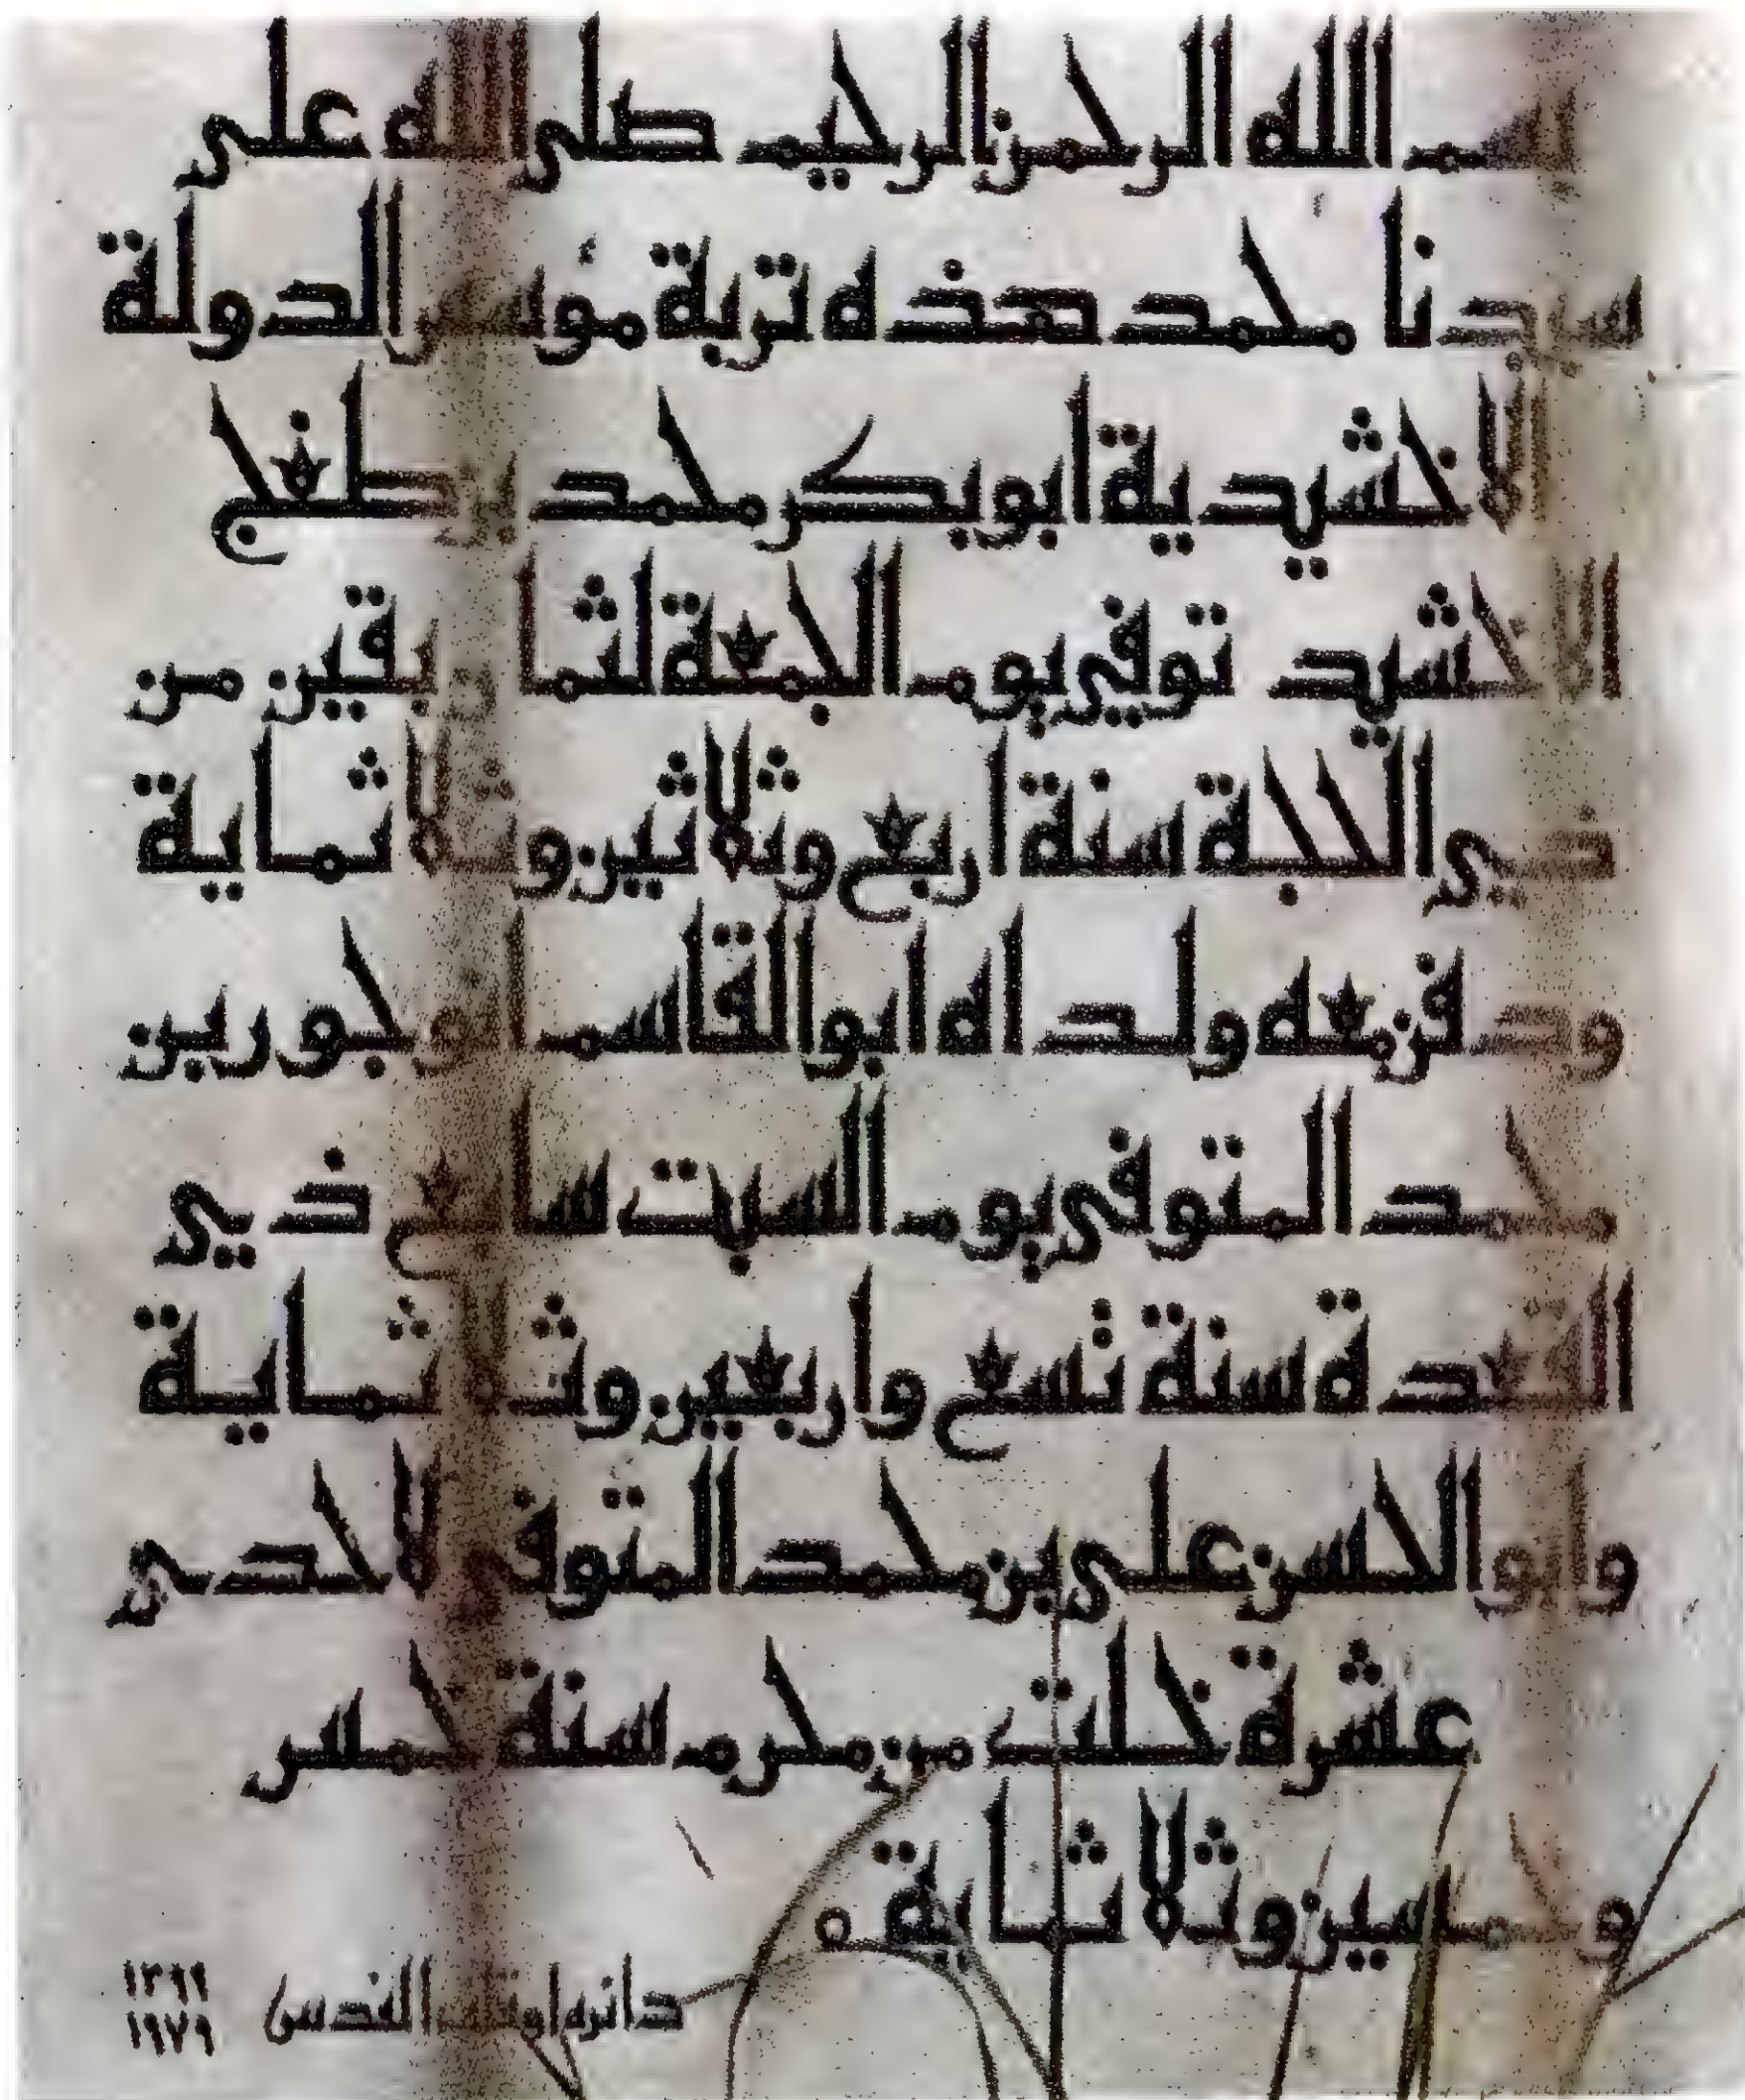 بسم الله الرحمن الرحيم صلى الله على
سيدنا محمد هذه تربة مؤسس الدولة
الاخشيدية ابو بكر محمد بن طغج
الاخشيد توفي يوم الجمعة لثمان بقين من
ذي الحجة سنة اربع وثلاثين وثلاثماية
ودفن معه ولداه ابو القاسم انوجور بن
محمد المتوفي يوم السبت سابع ذي
القعدة سنة تسع واربعين وثلاثماية
وابو الحسن علي بن محمد المتوفي لاحدي
عشرة خلت من محرم سنة خمس
وخمسين وثلاثماية ه
دائرة اوقاف القدس ١٣٩٩
١٩٧٩